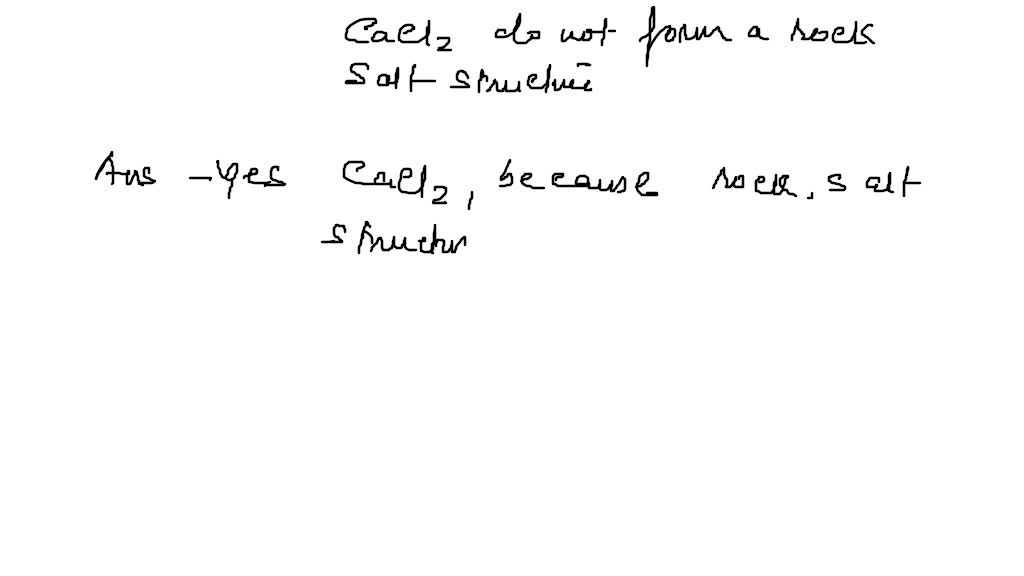 CaCl2 do not form a rock
Salt structure
Ans - Yes CaCl2, because rock salt
structur